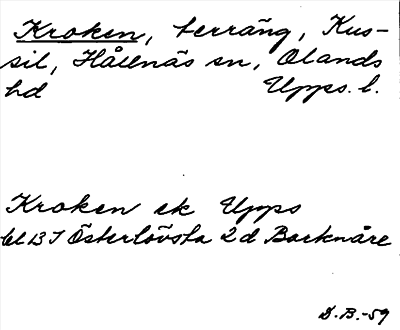 Kroken, terräng, Kus-
sil, Hållnäs sn, Olands
hd Upps. l.
Kroken ek Upps
bl 13 I Österlövsta 2 d Barknåre
D.B.-59